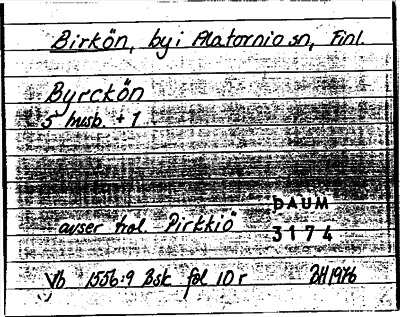 Birkön, by i Alatornio sn, Finl.
Byrckön
5 husb. + 1
avser trol. Pirkkiö
DAUM
3174
Vb 1556:9 Bsk fol 10 r BH 1976